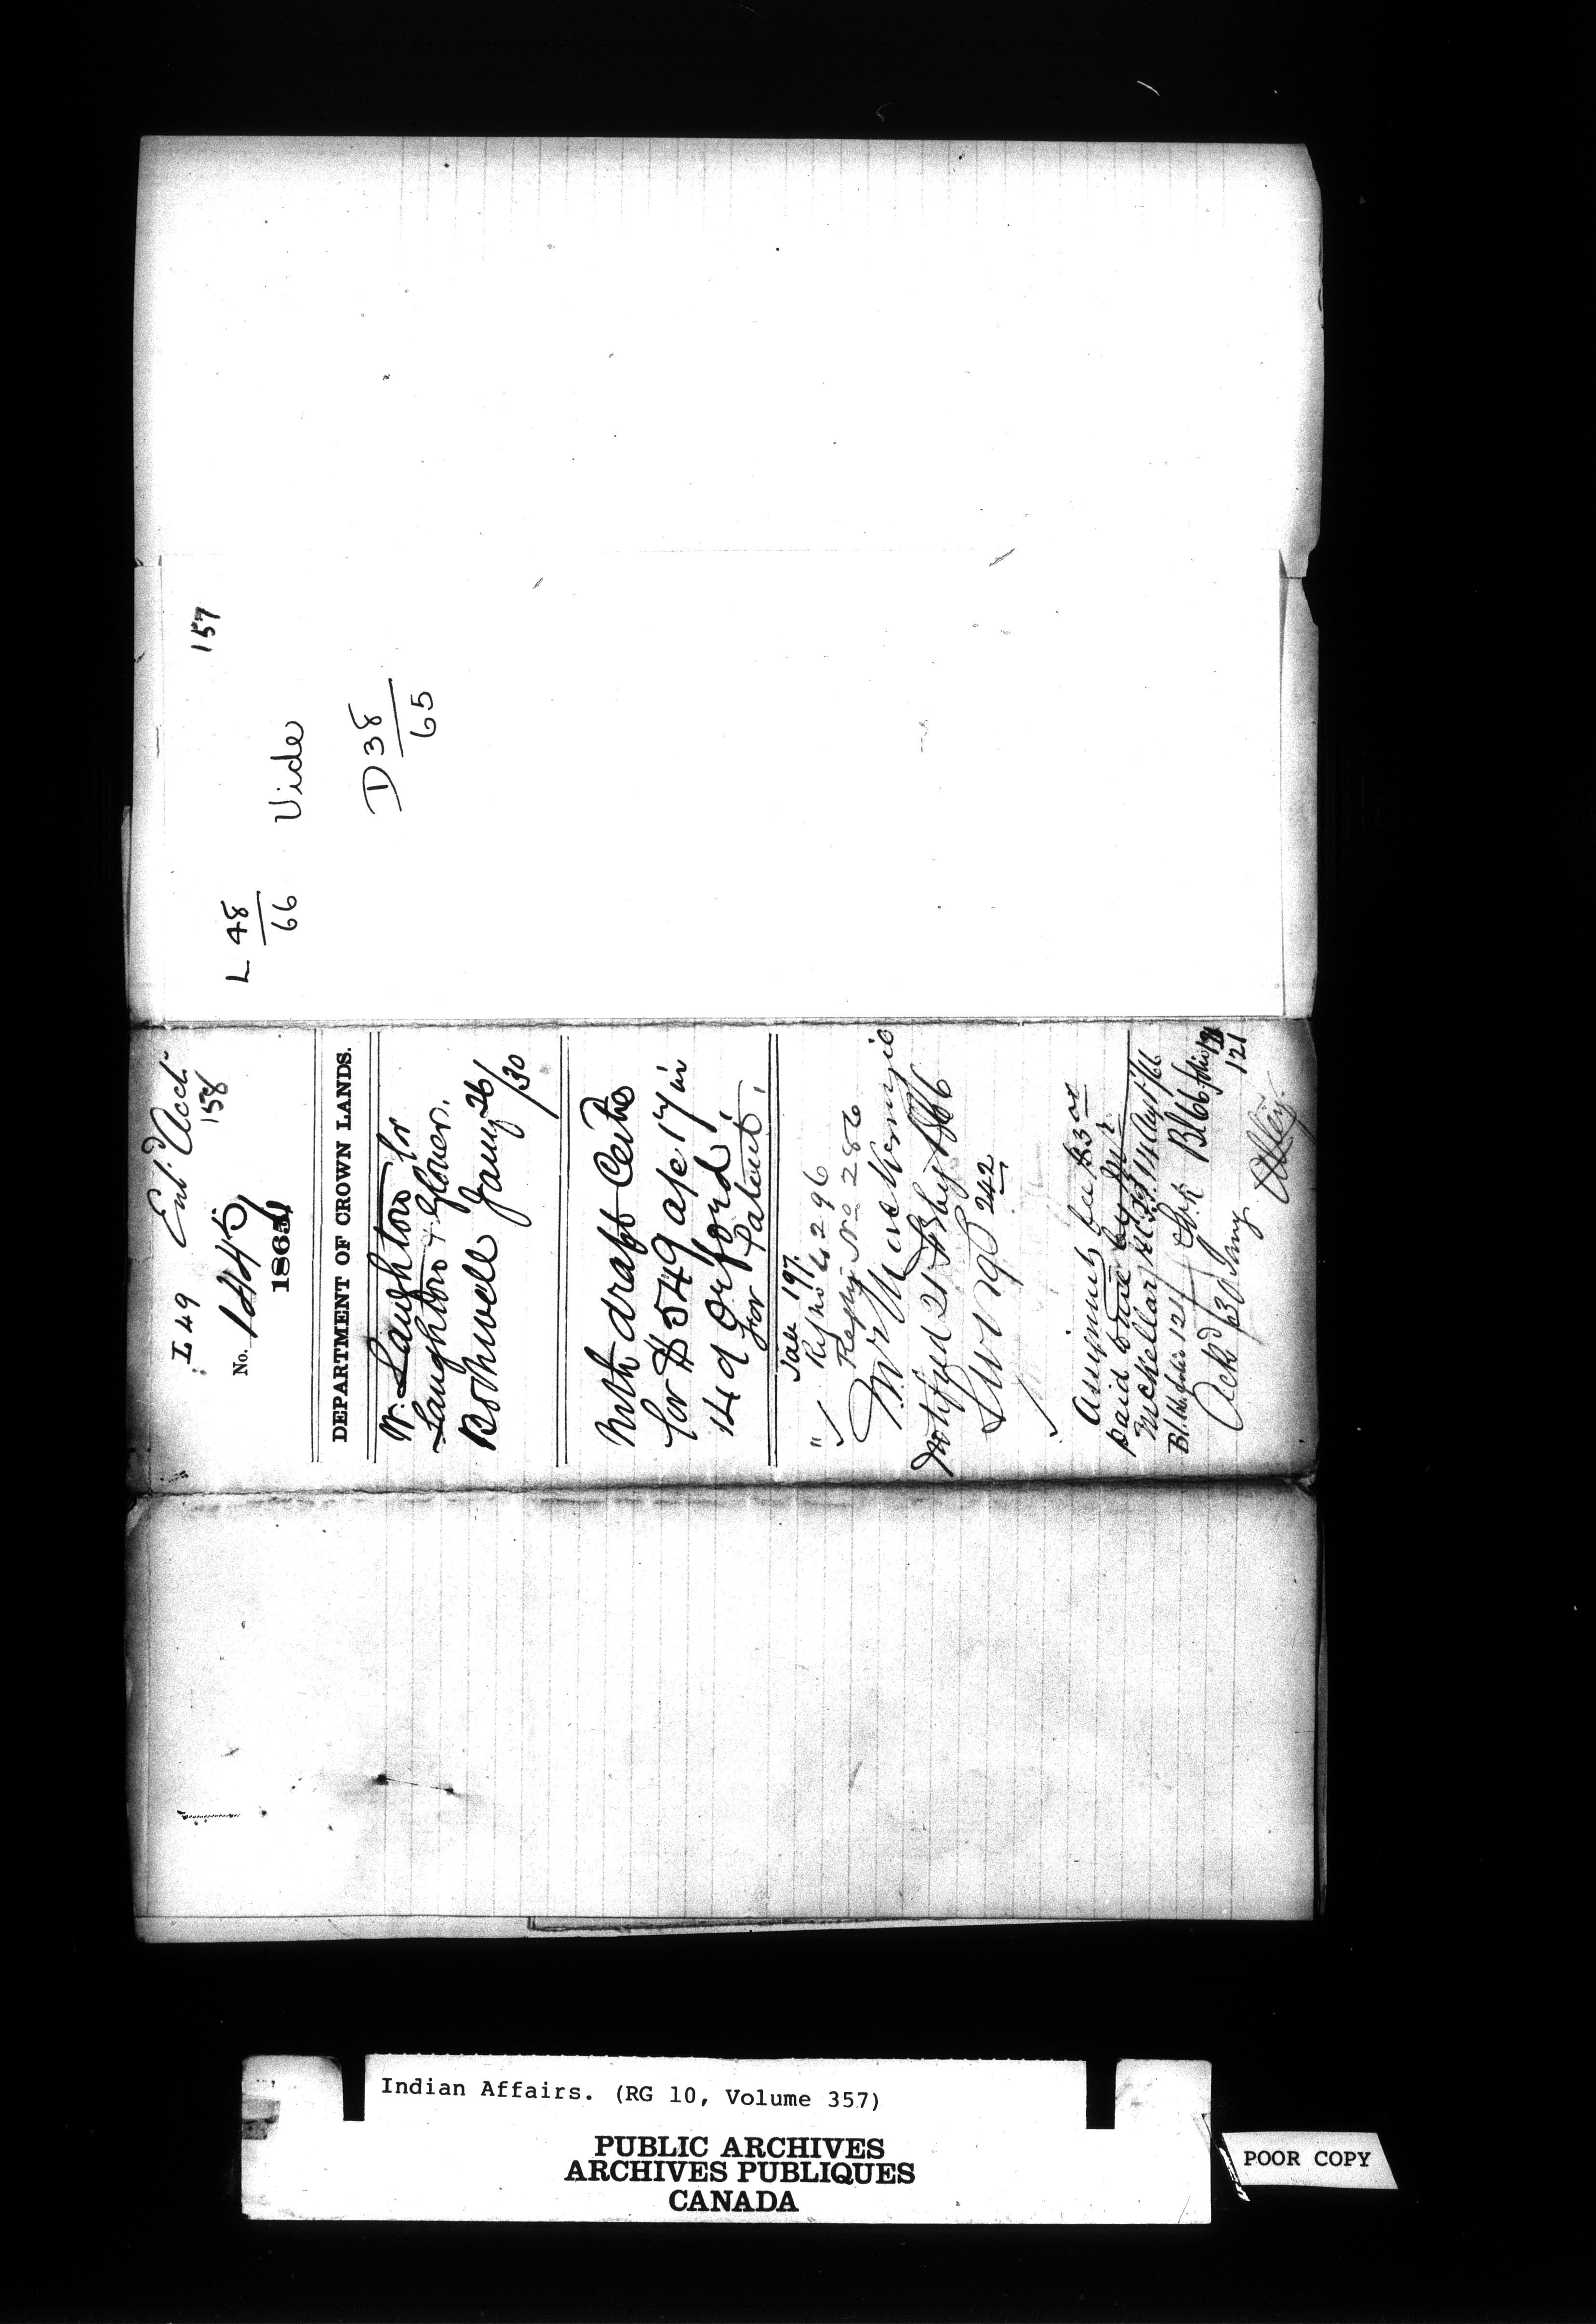 157
L 48/66 Vide
D 38/65
L 49 Ent.d Acct
158
No. 1445
1865
DEPARTMENT OF CROWN LANDS.
W. Laughton for
Laughton & Glover.
Bothwell Jany 26/30
With draft Certe
for $549 a/c 17 in
14 d Orford,
for Patent.
Sale 197.
" Ref no 4296
Reply No 286
Mr Mackenzie
Notified 21 Feby 1866
242
Assignment fee $3
paid to me by Mr
McKellar
Bl. 66 folio 121
Bl 66 folio
121
Ackd 30 Jany
Indian Affairs. (RG 10, Volume 357)
PUBLIC ARCHIVES
ARCHIVES PUBLIQUES
CANADA
POOR COPY